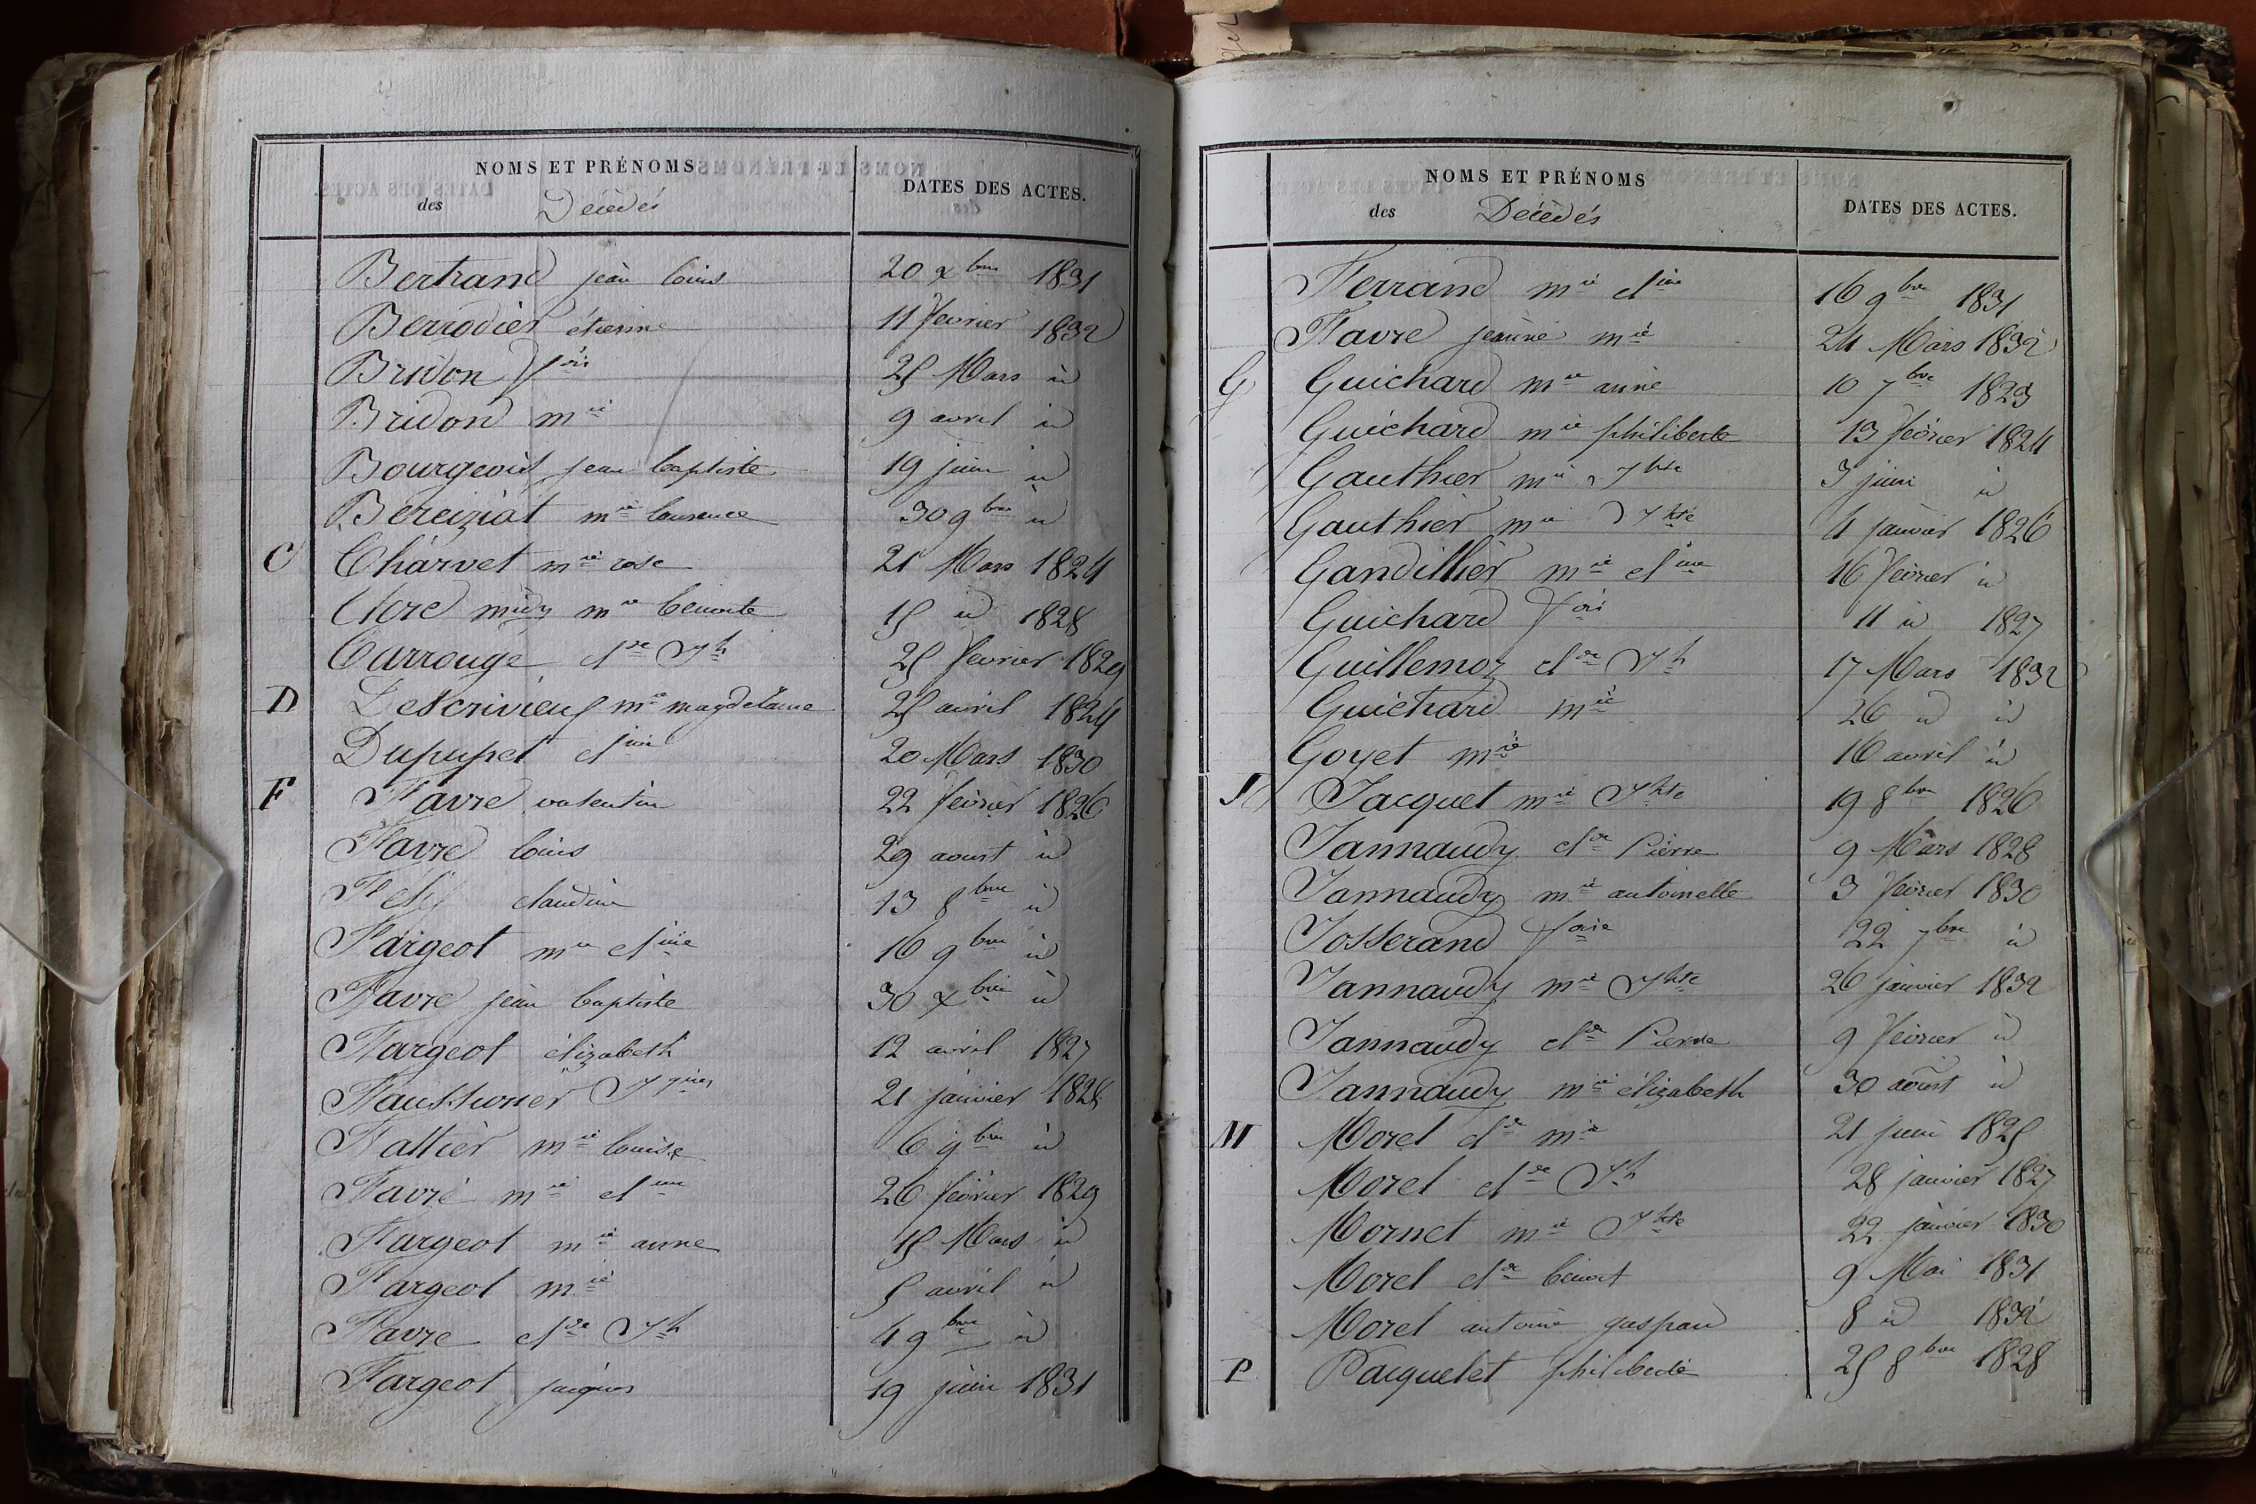 NOMS ET PRÉNOMS
des Décédés
DATES DES ACTES.
Bertrand jean louis 20 xbre 1831
Berrodier étienne 11 février 1832
Bridon fois 25 Mars id
Bridon mie 9 avril id
Bourgeois jean baptiste 19 juin id
Bereiziat mie laurence 30 9bre id
C Charvet mie rose 21 Mars 1824
mie benoite 15 id 1828
Carrouge cl de Jh 25 février 1829
D Descrivieux mie magdelaine 25 avril 1824
Dupupet cl ine 20 Mars 1830
F Favre valentin 22 février 1826
Favre louis 29 aoust id
claudine 13 8bre id
Fargeot mie cl ine 16 9bre id
Favre jean baptiste 30 xbre id
Fargeot élizabeth 12 avril 1827
Jques 21 janvier 1828
mie louise 6 9bre id
Favre mie cl ine 26 février 1829
Fargeot mie anne 15 Mars id
Fargeot mie 5 avril id
Favre cl de Jh 4 9bre id
Fargeot jacques 19 juin 1831
NOMS ET PRÉNOMS
des Décédés
DATES DES ACTES.
Ferrand mie cl ine 16 9bre 1831
Favre jeanne mie 24 Mars 1832
G Guichard mie anne 10 7bre 1823
Guichard mie philiberte 13 février 1824
Gauthier mie Jhte 3 juin id
Gauthier mie Jhte 4 janvier 1826
Gandillier mie cl ine 16 février id
Guichard fois 11 id 1827
Guillemoz cl de Jh 17 Mars 1832
Guichard mie 26 id id
Goyet mie 16 avril id
J Jacquet mie Jhte 19 8bre 1826
Jannaudy cl de Pierre 9 Mars 1828
Jannaudy mie antoinette 3 février 1830
Josserand foise 22 7bre id
Jannaudy mie Jhte 26 janvier 1832
Jannaudy cl de Pierre 9 février id
Jannaudy mie élizabeth 30 aoust id
M Morel cl de mie 21 juin 1825
Morel cl de Jh 28 janvier 1827
Mornet mie Jhte 22 janvier 1830
Morel cl de benoit 9 Mai 1831
Morel antoine gaspard 8 id 1832
P Pacquelet philiberte 25 8bre 1828